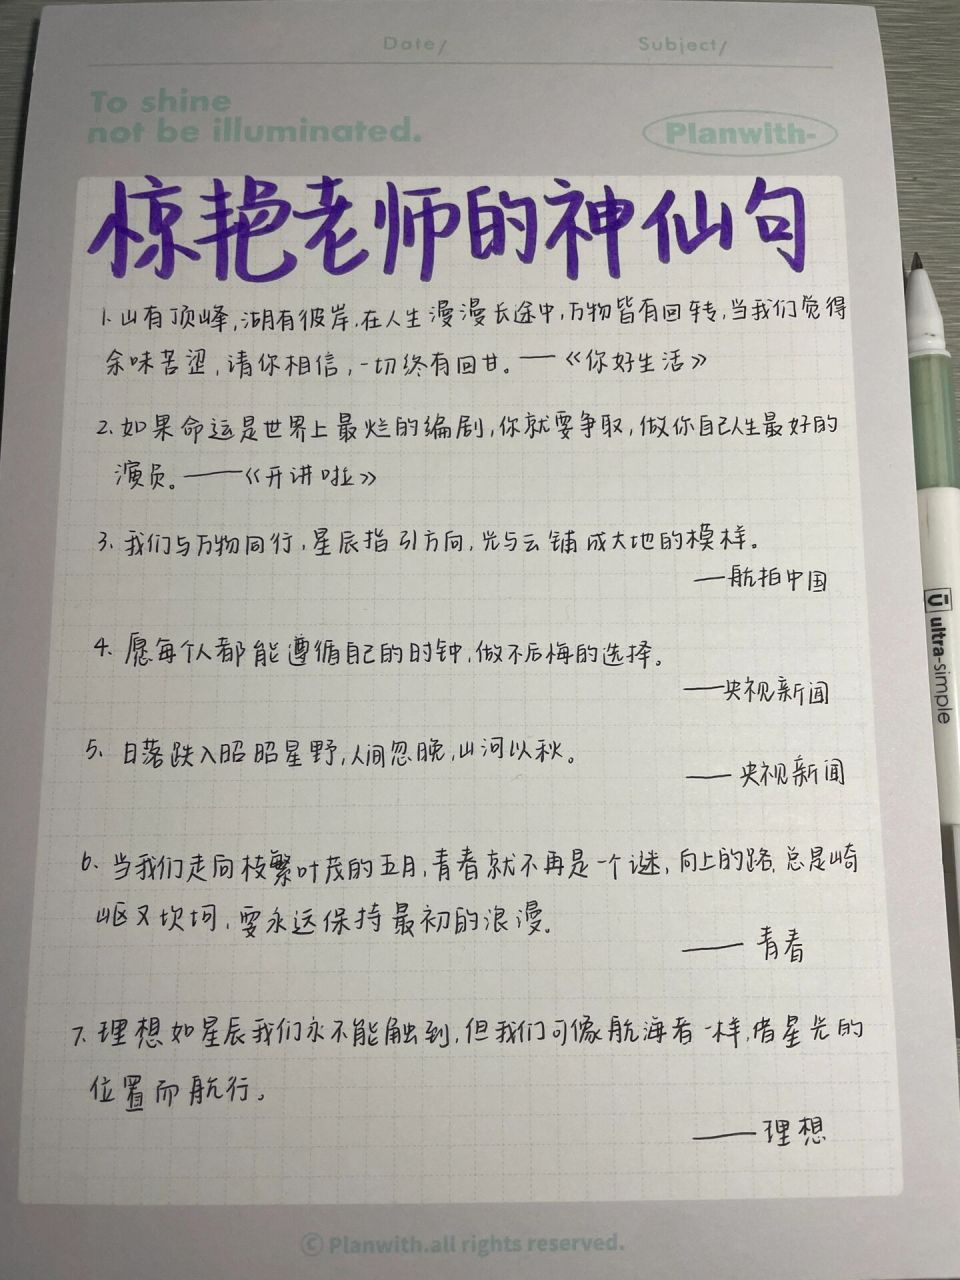 Date/ Subject/
To shine
not be illuminated.
Planwith-
惊艳老师的神仙句
1. 山有顶峰,湖有彼岸,在人生漫漫长途中,万物皆有回转,当我们觉得
余味苦涩,请你相信,一切终有回甘。——《你好生活》
2. 如果命运是世界上最烂的编剧,你就要争取,做你自己人生最好的
演员。——《开讲啦》
3. 我们与万物同行,星辰指引方向,光与云铺成大地的模样。
——航拍中国
4. 愿每个人都能遵循自己的时钟,做不后悔的选择。
——央视新闻
5. 日落跌入昭昭星野,人间忽晚,山河以秋。
——央视新闻
6. 当我们走向枝繁叶茂的五月,青春就不再是一个谜,向上的路,总是崎
岖又坎坷,要永远保持最初的浪漫。
——青春
7. 理想如星辰我们永不能触到,但我们可像航海者一样,借星光的
位置而航行。
——理想
© Planwith.all rights reserved.
Ū ultra-simple